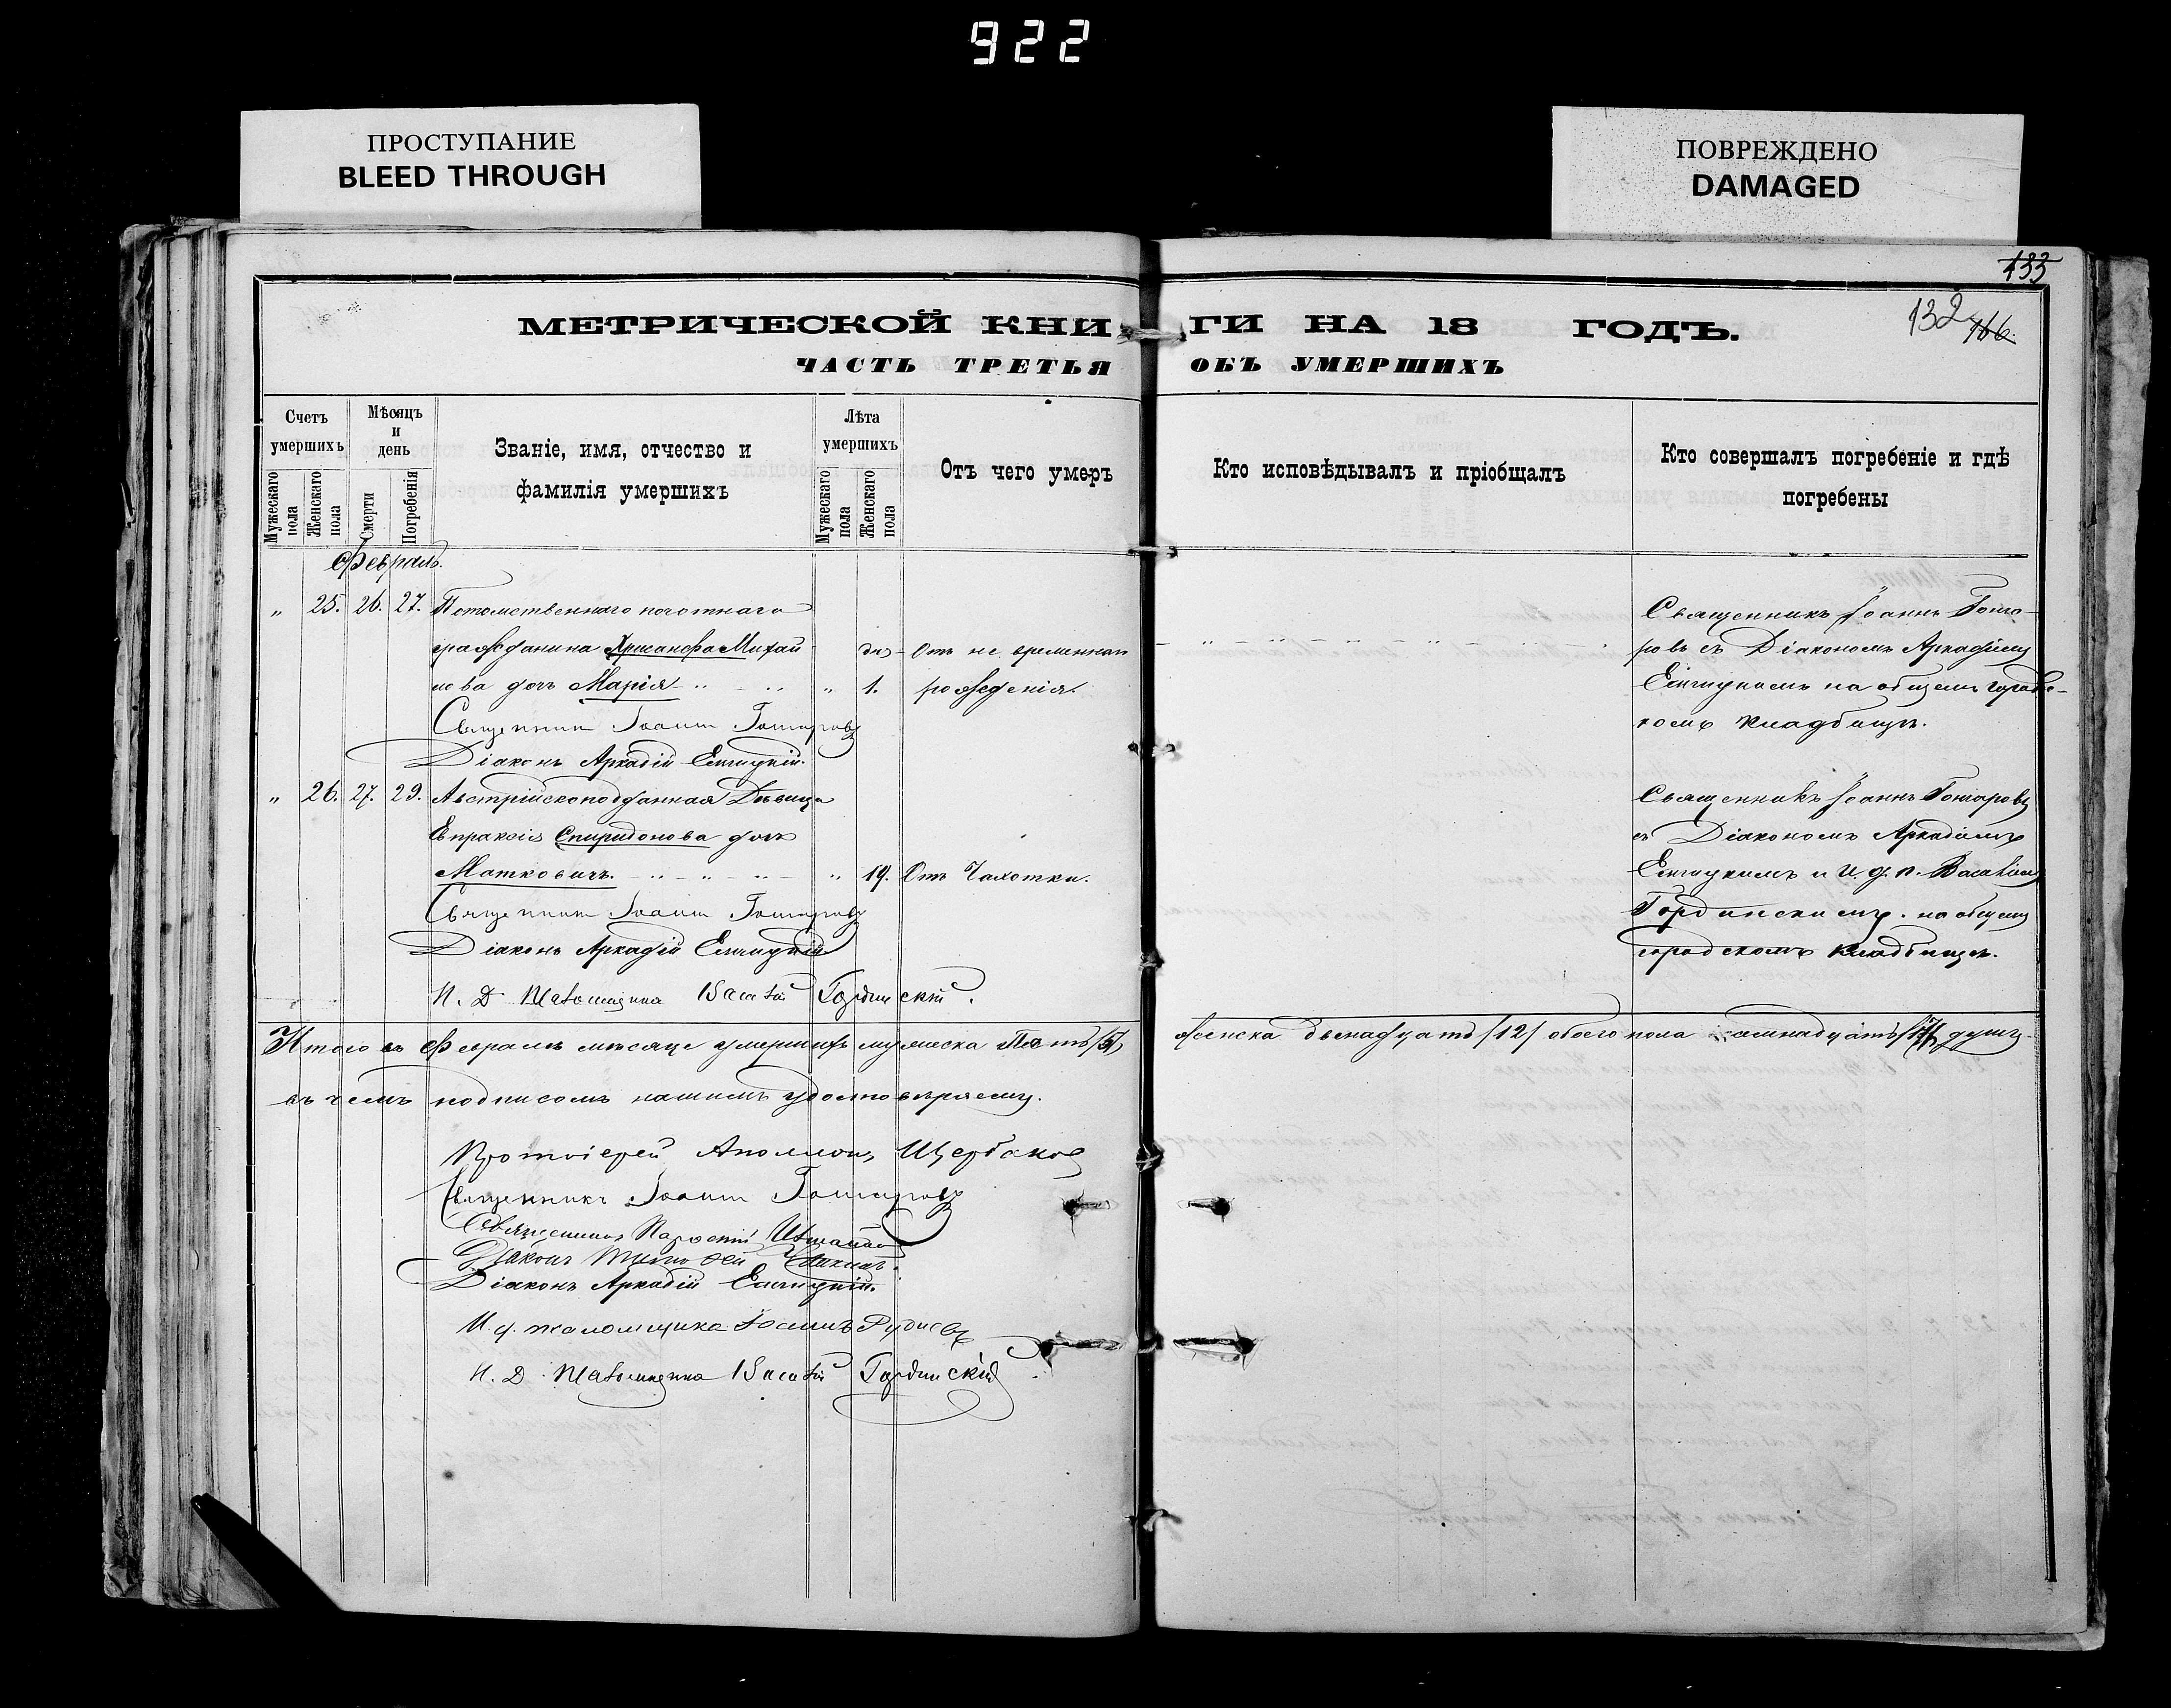 922
ПРОСТУПАНИЕ
BLEED THROUGH
ПОВРЕЖДЕНО
DAMAGED
132
166.
МЕТРИЧЕСКОЙ КНИ ГИ НА 18 ГОДЪ.
ЧАСТЬ ТРЕТЬЯ ОБЪ УМЕРШИХЪ
Счетъ умершихъ
Мужескаго пола
Женскаго пола
Мѣсяцъ и день
Смерти
Погребенія
Званіе, имя, отчество и
фамилія умершихъ
Лѣта умершихъ
Мужескаго пола
Женскаго пола
Отъ чего умеръ
Кто исповѣдывалъ и пріобщалъ
Кто совершалъ погребеніе и гдѣ
погребены
Февраль.
„ 25. 26. 27. Потомственнаго почотнаго
гражданина Хрисанфа Михай
лова дочь Марія „ 1. Отъ не временнаго
рожденія.
Священникъ Іоаннъ Гончаровъ
Діаконъ Аркадій
Священникъ Іоаннъ Гонча-
ровъ съ Діакономъ Аркадіемъ
на общемъ городс-
комъ кладбищѣ.
„ 26. 27. 29. Австрійскоподданная Дѣвица
Епраксія Спиридонова дочь
Матковичъ. „ 19. Отъ Чахотки.
Священникъ Іоаннъ Гончаровъ
Діаконъ Аркадій
И. Д. Псаломщика Василій Гординскій.
Священникъ Іоаннъ Гончаровъ
съ Діакономъ Аркадіемъ
и И. д. п. Василіем
Гординскимъ. на общемъ
городскомъ кладбищѣ.
Итого въ Февралѣ мѣсяце умершихъ мужеска Пять /5/ женска двенадцать /12/ обоего пола семнадцать /17/ душъ
въ чемъ подписомъ нашимъ удостовѣряемъ.
Протоіерей Аполлонъ Щербаковъ
Священникъ Іоаннъ Гончаровъ
Священникъ
Діаконъ Тимофей
Діаконъ Аркадій
И. д. псаломщика Іоаннъ
И. Д. Псаломщика Василій Гординскій